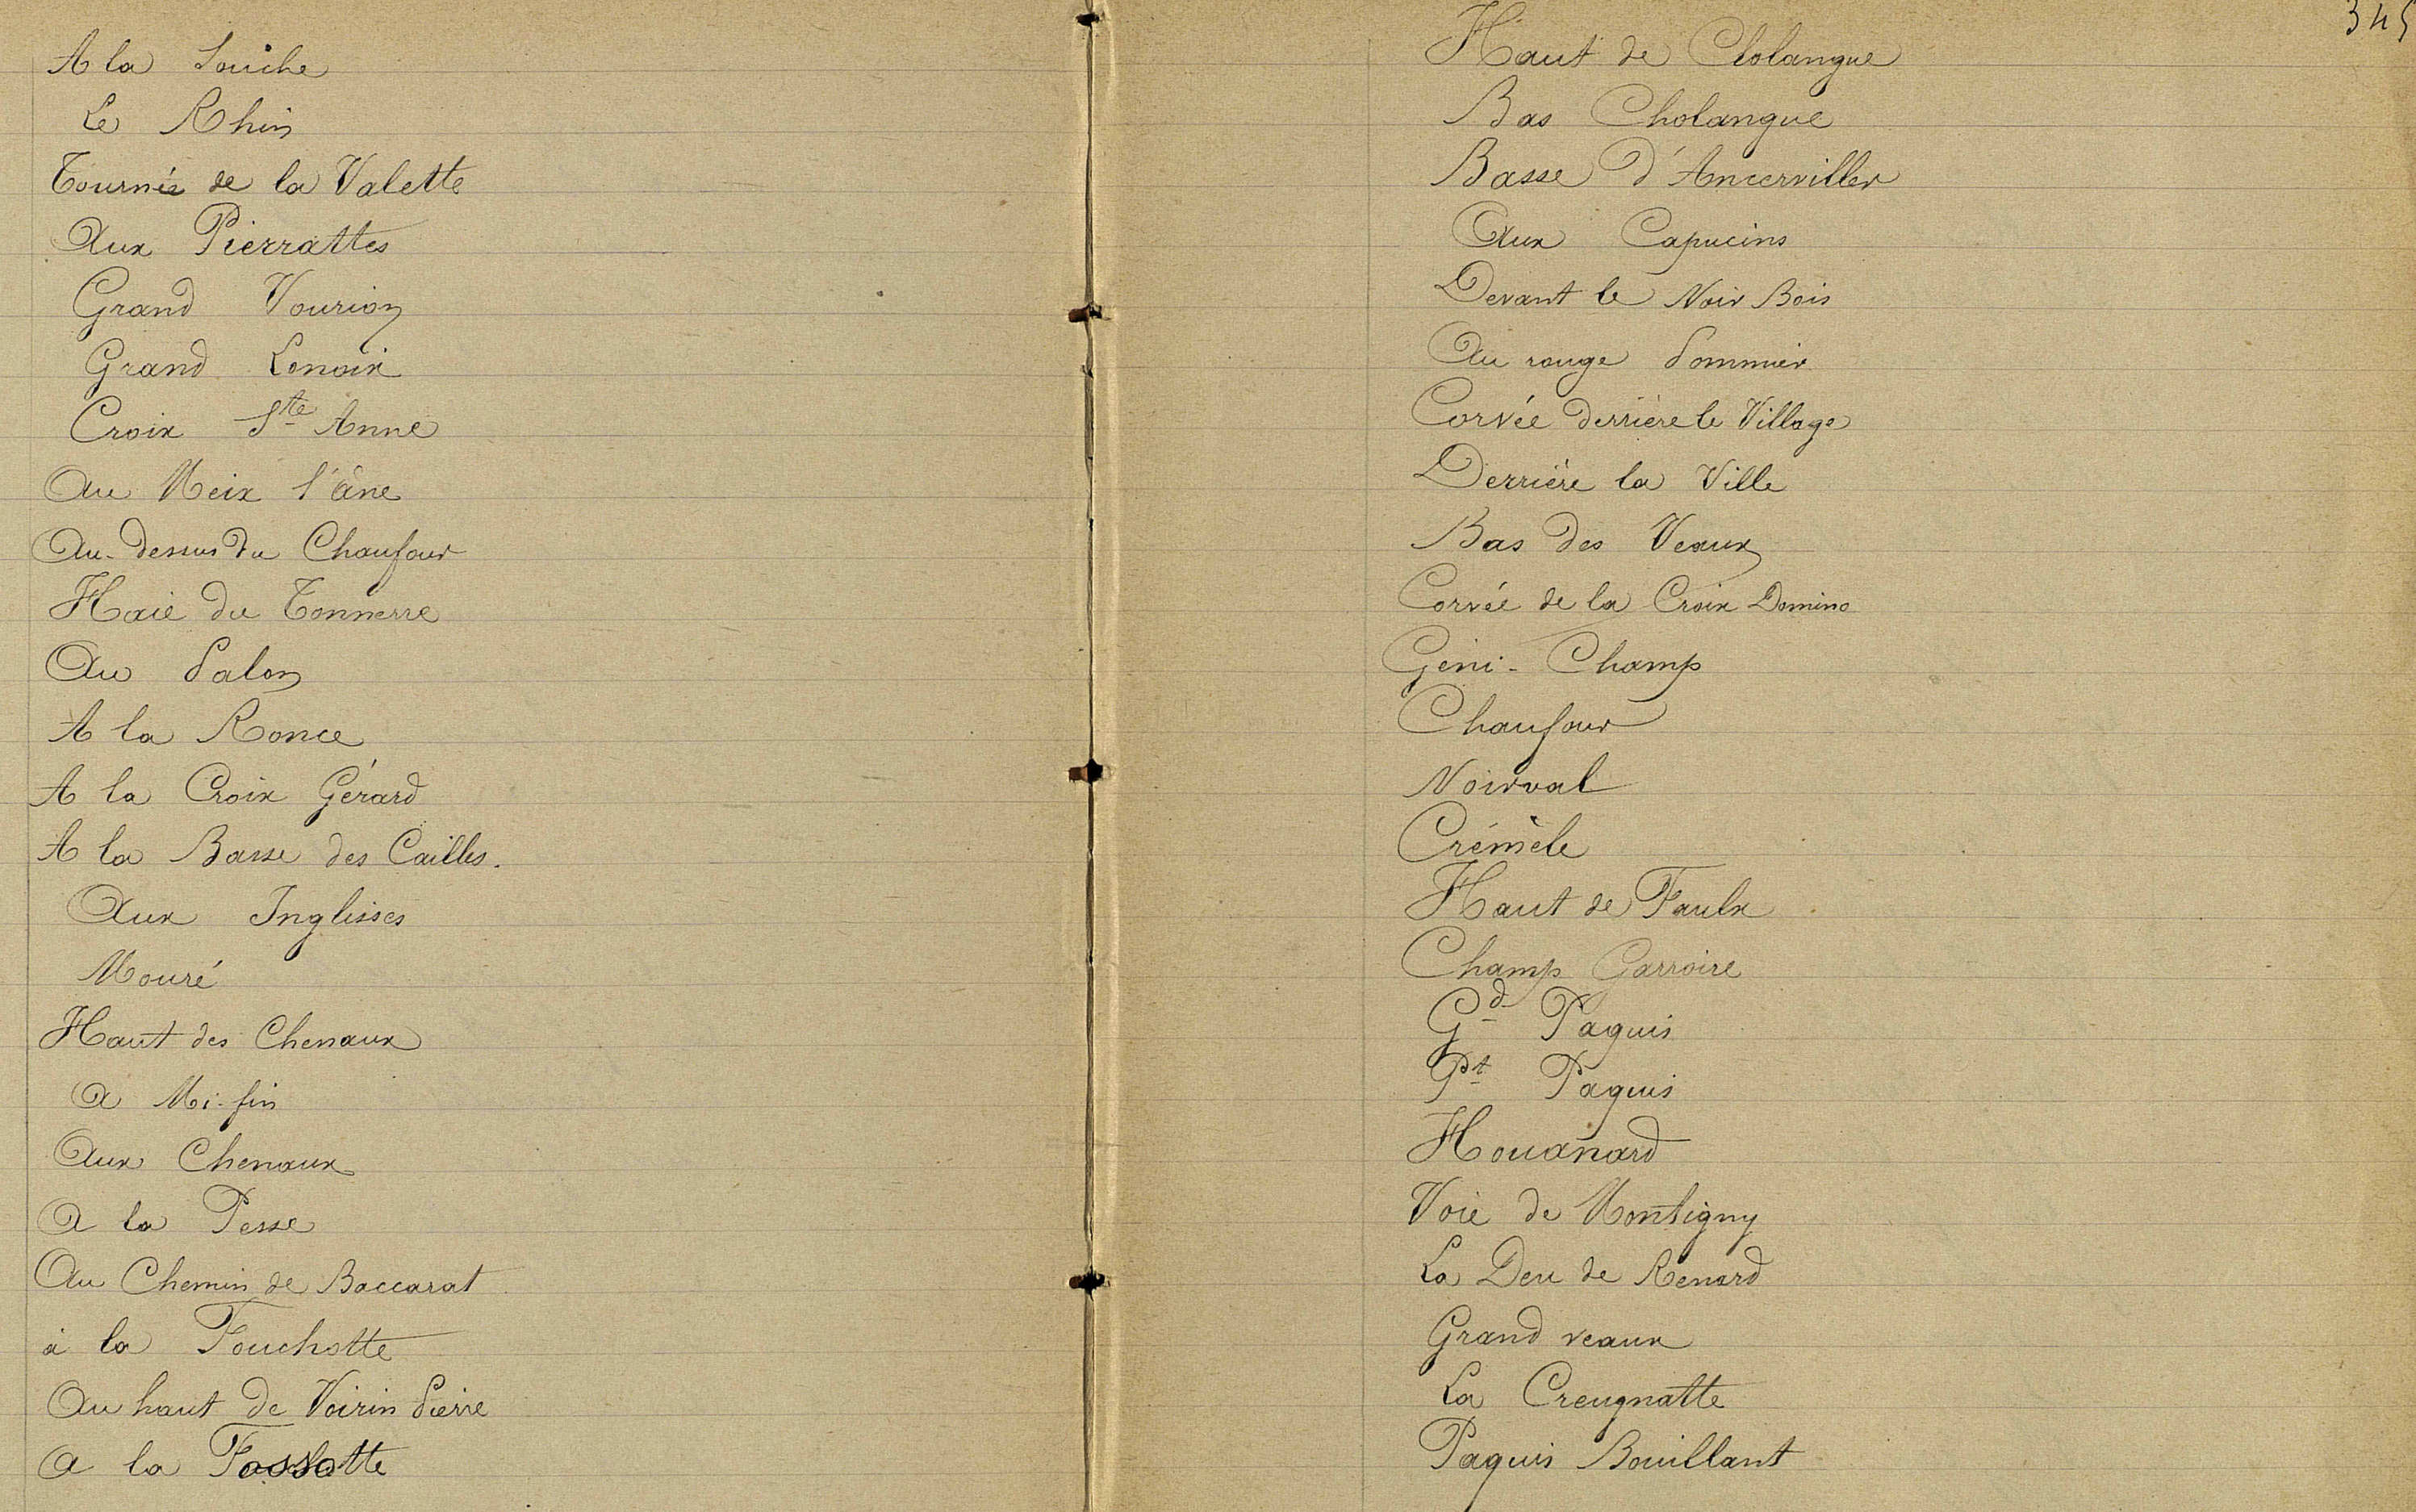 A la Souche
Le Rhin
Tournée de la Valette
Aux Pierrattes
Grand Vourion
Grand Lenoir
Croix Ste Anne
Au Meix l'âne
Au-dessus du Chaufour
Haie du Tonnerre
Au Palon
A la Ronce
A la Croix Gérard
A la Basse des Cailles.
Aux Inglisses
Mouré
Haut des Chenaux
A Mi-fin
Aux Chenaux
A la Pesse
Au Chemin de Baccarat
à la Fouchotte
Au haut de Voirin Pierre
A la Fossotte
345
Haut de Cholangue
Bas Cholangue
Basse d'Ancerviller
Aux Capucins
Devant le Noir Bois
Au rouge Pommier
Corvée derrière le Village
Derrière la Ville
Bas des Veaux
Corvée de la Croix Domino
Géni-Champ
Chaufour
Noirval
Crémèle
Haut de Faulx
Champ Garroire
Gd Paquis
Pt Paquis
Houanard
Voie de Montigny
La Deu de Renard
Grand veaux
La Creugnatte
Paquis Bouillant